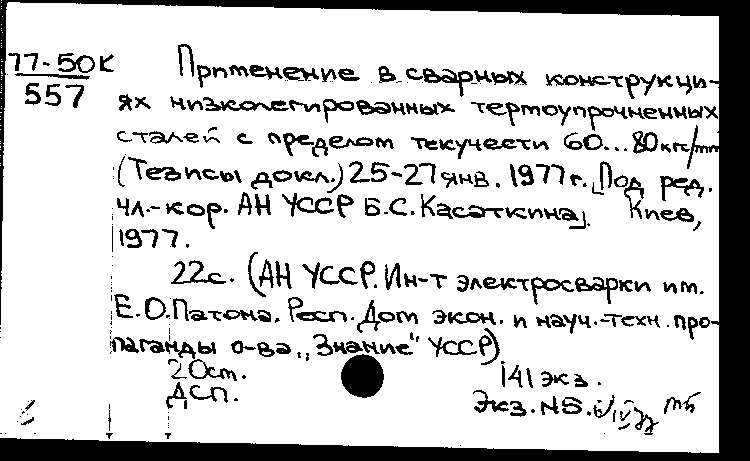 77-50К
557
Применение в сварных конструкци-
ях низколегированных термоупрочненных
сталей с пределом текучести 60...80 кгс/mm
(Тезисы докл.) 25-27 янв. 1977г. [Под ред.
чл.-кор. АН УССР Б.С. Касаткина]. Киев,
1977.
22с. (АН УССР. Ин-т электросварки им.
Е.О.Патона. Респ. Дом экон. и науч.-техн. про-
паганды о-ва „Знание" УССР)
20ст.
141 экз.
ДСП.
Экз. №5.